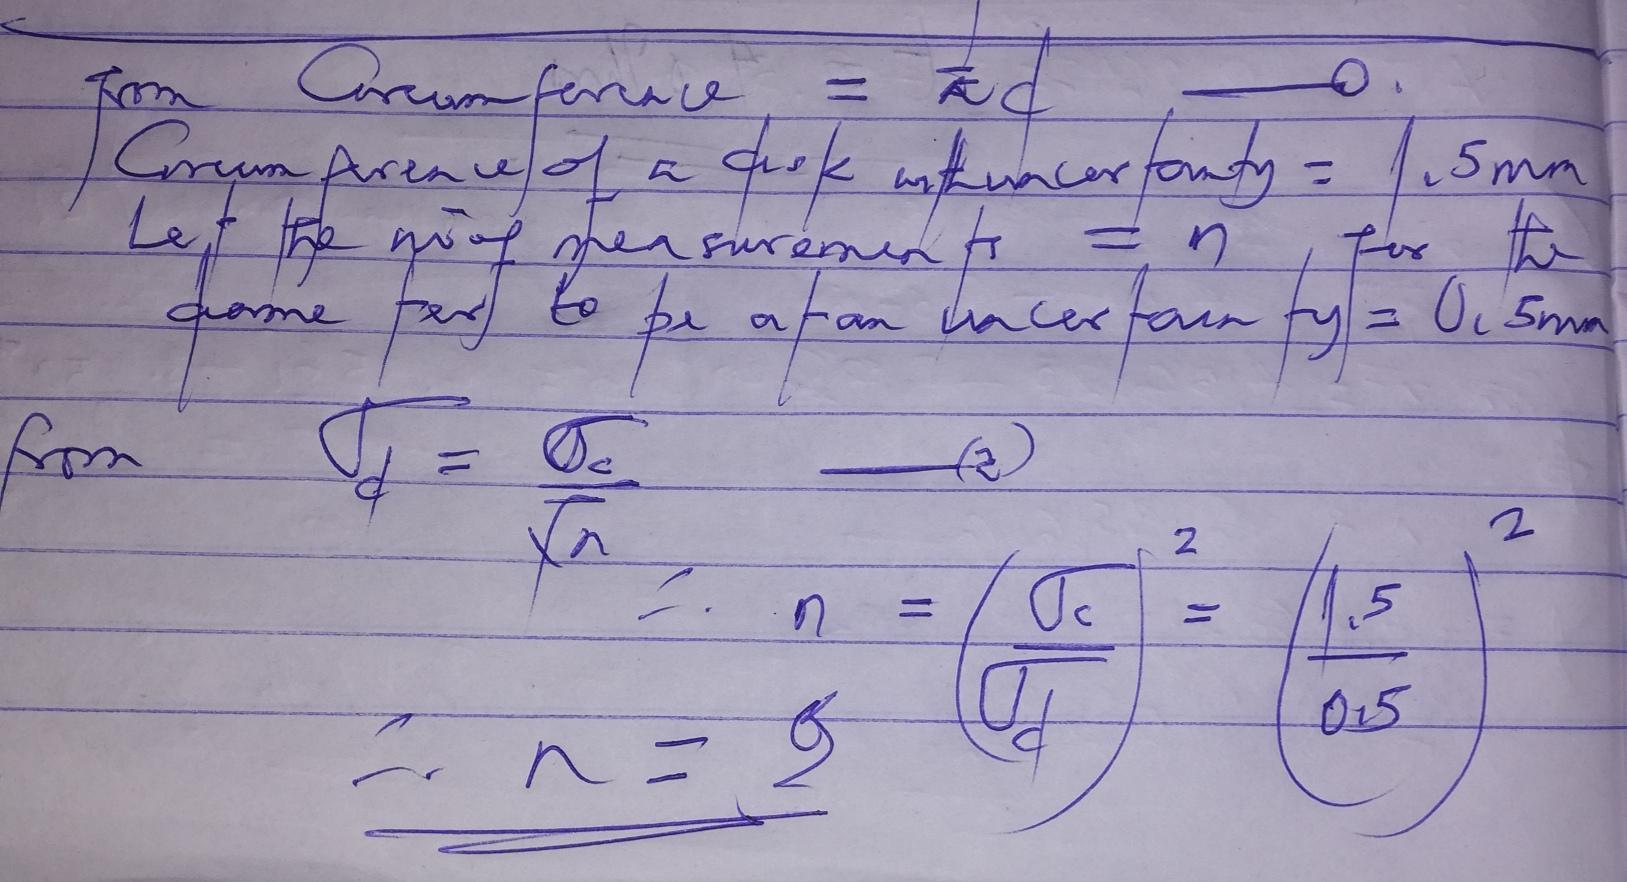 from Circumference = πd —— ①.
Circumference of a disk with uncertainty = 1.5mm
Let the no of measurements = n, for the
diameter to be at an uncertainty = 0.5mm
from σd = σc / √n —— (2)
∴ n = (σc / σd)² = (1.5 / 0.5)²
∴ n = 9